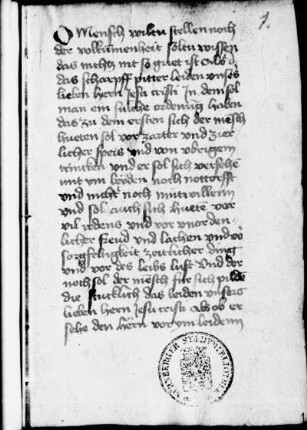 O Mensch wiltu stellen noch
der volkumenheit soltu wissen
das nichtz mit so guet ist Als d
das scharpff pitter leiden unsers
lieben hern Jesu cristi In dem sol
man ein sulche ordenung haben
das zu dem ersten sich der mesch
hueten sol vor zarter und zier
licher speis und von ubrigem
trincken und er sol sich versehe
mit in beyden noch nottorfft
und nicht noch mutwillenn
und sol auch sich huete vor
vil redens und vor unorden
licher freud und lachen und vo
sorgfeltigkeit zeitlicher ding
und vor des leibs lust Und dor
noch sol der mesch fur sich
die stucklich das leiden unsers
lieben hern Jesu cristi Als ob er
sehe den hern vor im leidenn
1.
STADTBIBLIOTHEK